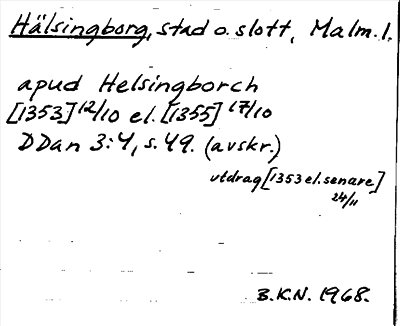 Hälsingborg, stad o. slott, Malm. l.
apud Helsingborch
[1353] 12/10 el. [1355] 17/10
DDan 3:4, s. 49. (avskr.)
utdrag [1353 el. senare]
24/11
B.K.N. 1968.